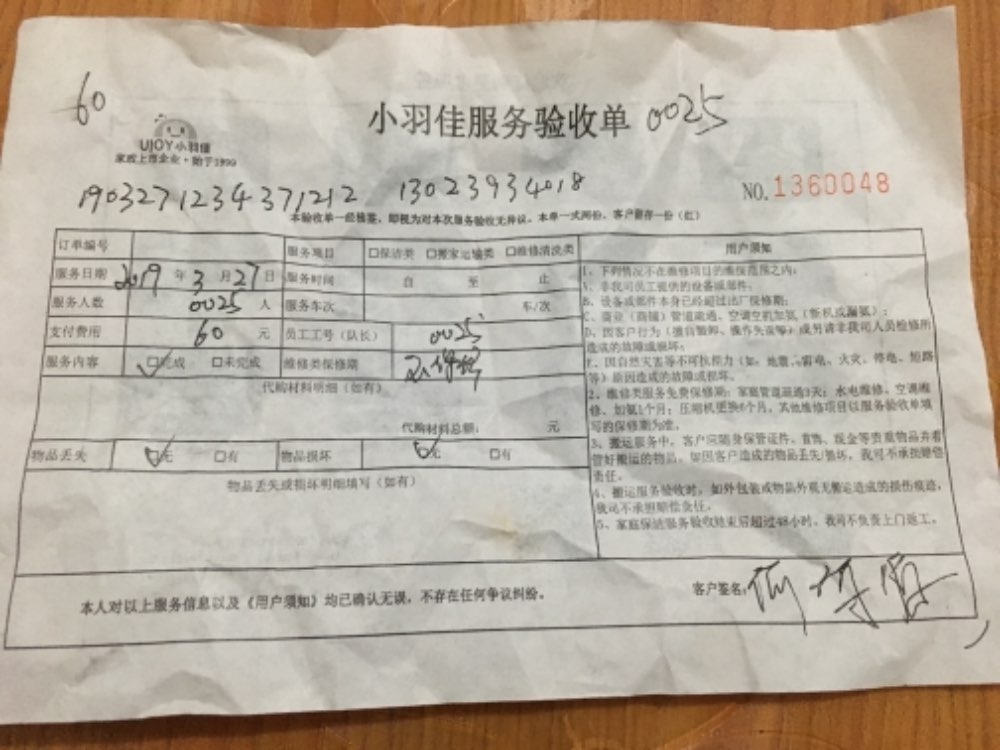 60
小羽佳服务验收单 0025
UJOY小羽佳
家政上市企业·始于1999
1903271234371212 13023934018
NO.1360048
本验收单一经签署，即视为对本次服务验收无异议。本单一式两份，客户留存一份（红）
订单编号 服务项目 □保洁类 □搬家运输类 □维修清洗类
服务日期 2019 年 3 月 27 日 服务时间 自 至 止
服务人数 0025 人 服务车次 车/次
支付费用 60 元 员工工号（队长） 0025
服务内容 □完成 □未完成 维修类保修期
代购材料明细（如有）
代购材料总额： 元
物品丢失 □无 □有 物品损坏 □无 □有
物品丢失或损坏明细填写（如有）
用户须知
1、下列情况不在维修项目的维保范围之内：
A、非我司员工提供的设备或部件；
B、设备或部件本身已经超过出厂保修期；
C、商业（商铺）管道疏通、空调空机加氨（新机或漏氨）；
D、因客户行为（擅自毁卸、操作失误等）或另请非我司人员检修所
造成的故障或损坏；
E、因自然灾害等不可抗拒力（如，地震、雷电、火灾、停电、短路
等）原因造成的故障或损坏。
2、维修类服务免费保修期：家庭管道疏通3天；水电维修、空调维
修、加氨1个月；压缩机更换6个月，其他维修项目以服务验收单填
写的保修期为准。
3、搬运服务中，客户应随身保管证件、首饰、现金等贵重物品并看
管好搬运的物品。如因客户造成的物品丢失/损坏，我司不承担赔偿
责任。
4、搬运服务验收时，如外包装或物品外观无搬运造成的损伤痕迹，
我司不承担赔偿责任。
5、家庭保洁服务验收结束后超过48小时，我司不负责上门返工。
本人对以上服务信息以及《用户须知》均已确认无误，不存在任何争议纠纷。
客户签名：